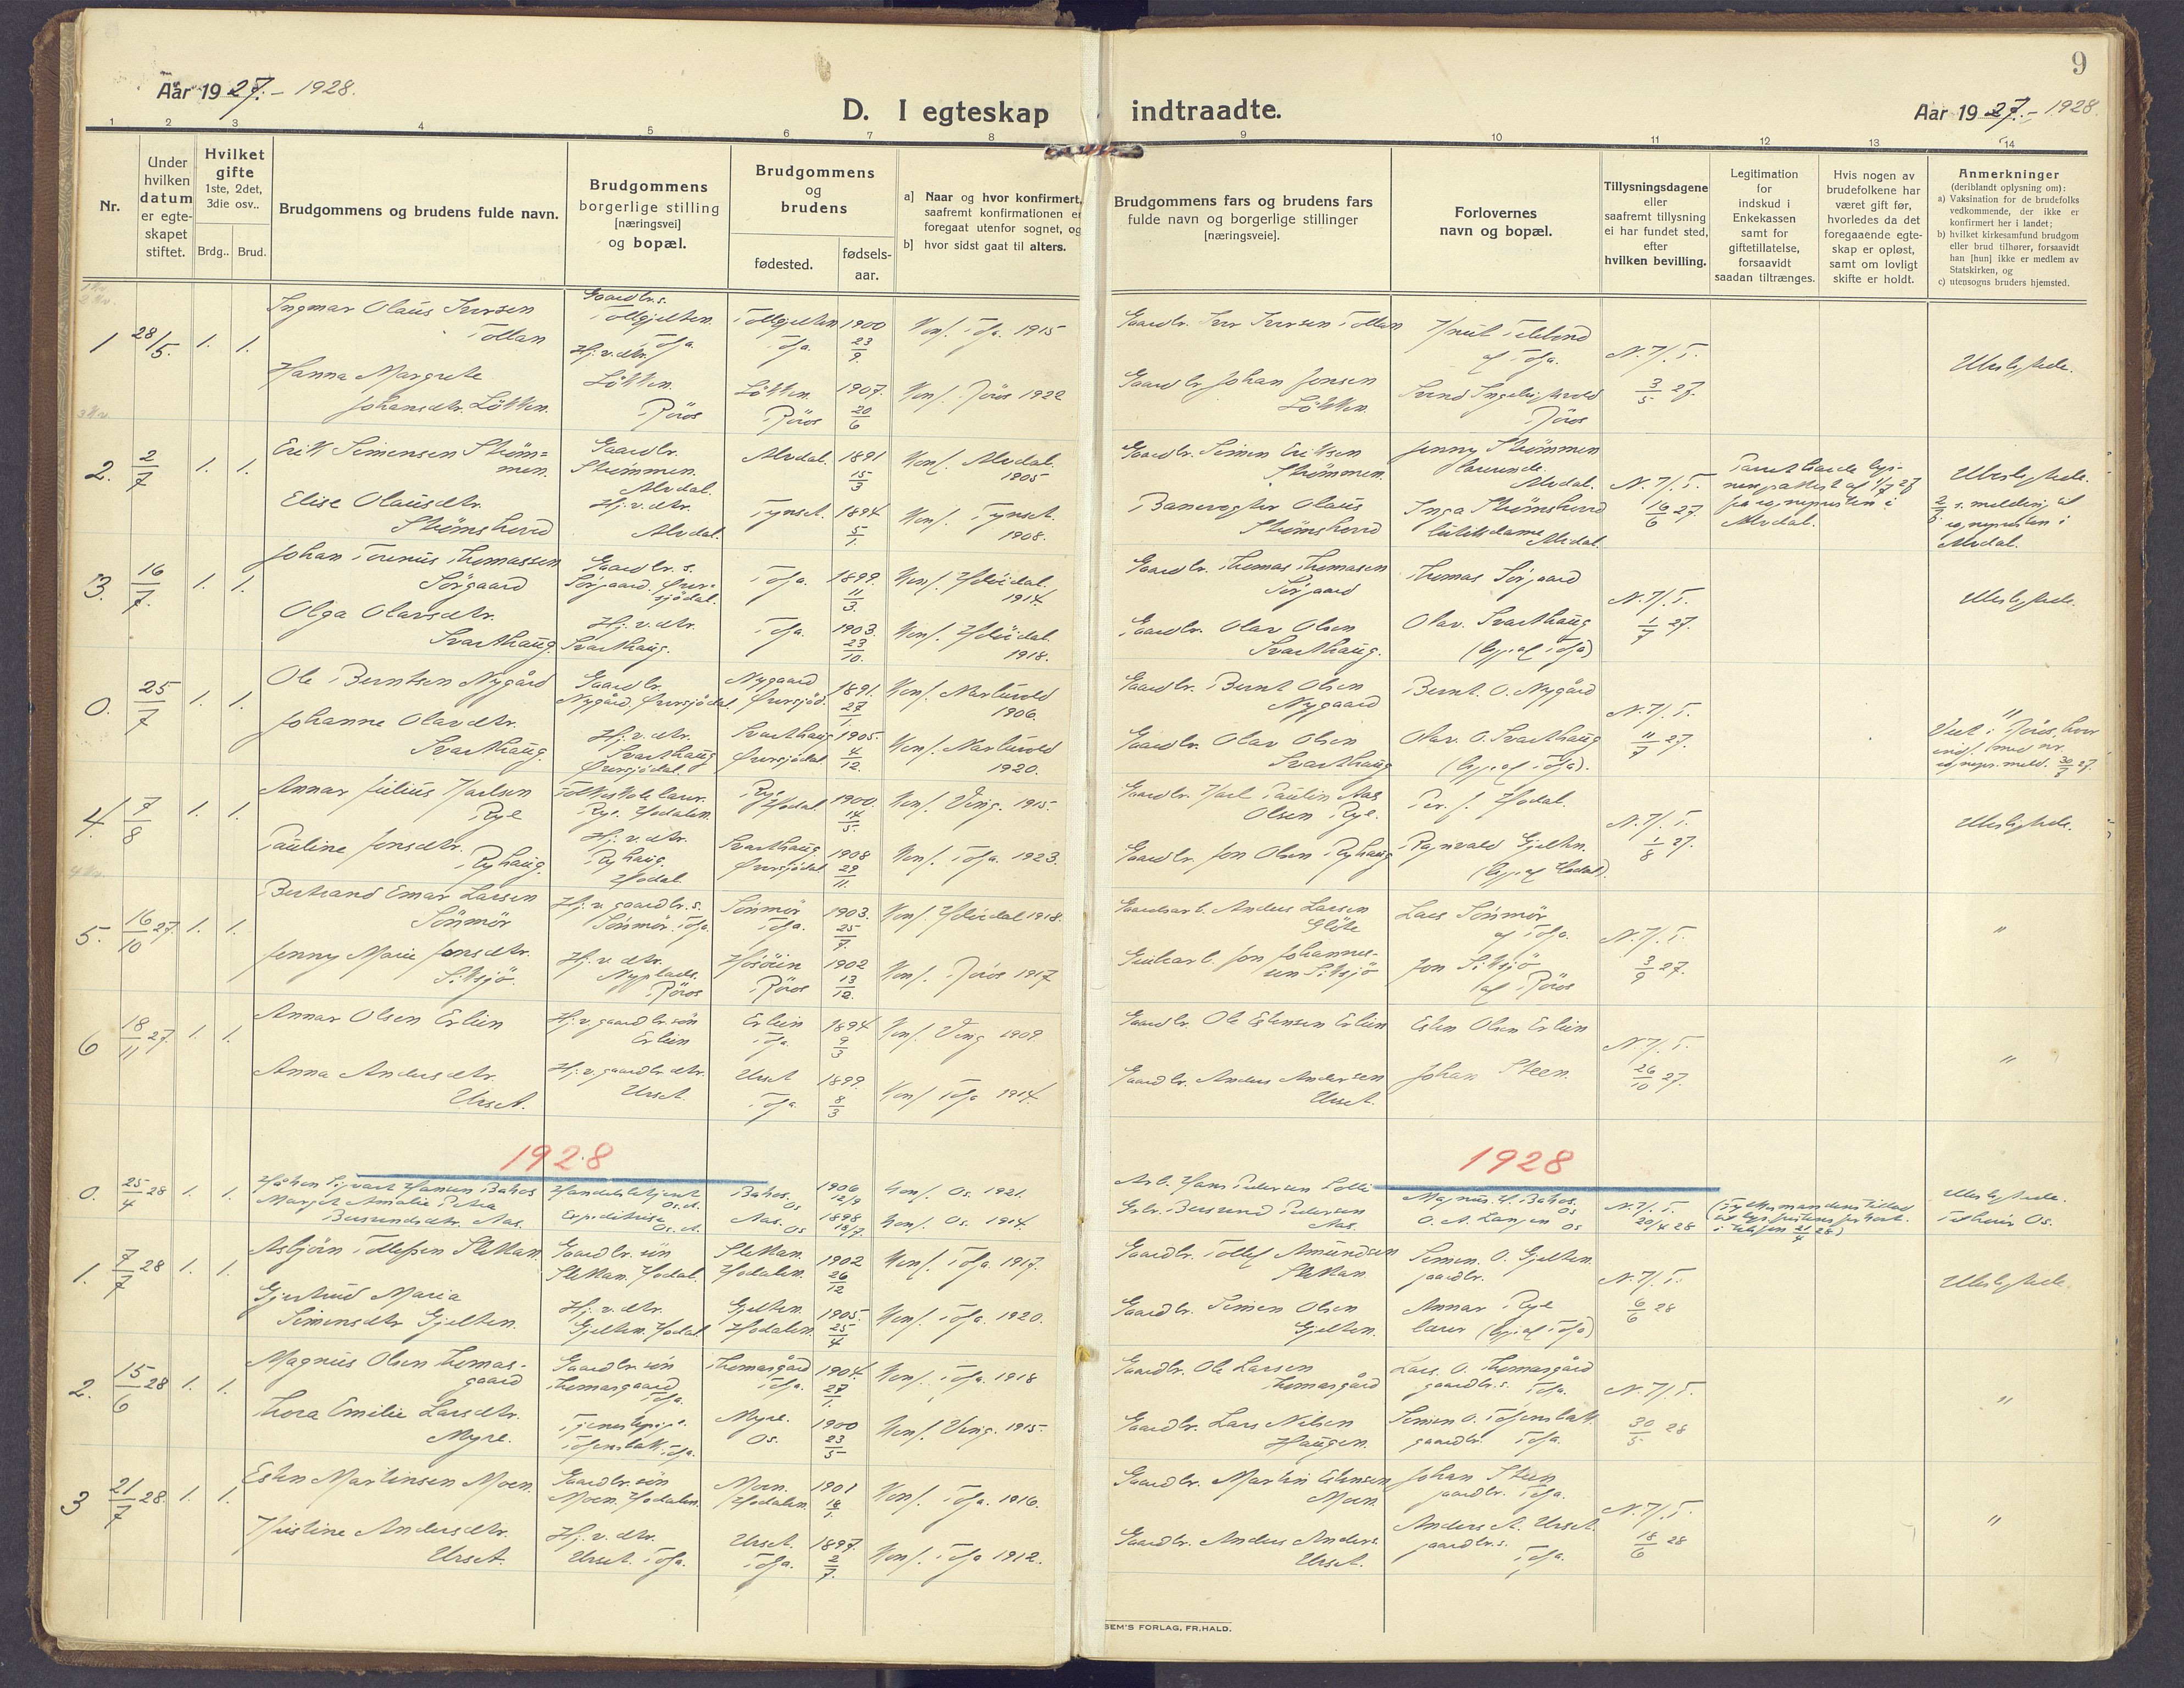 Aar 1927. - 1928.
D. I egteskap indtraadte.
Aar 1927. - 1928.
9
1 2 3 4 5 6 7 8 9 10 11 12 13 14
Nr.
Under hvilken datum er egteskapet stiftet.
Hvilket gifte 1ste, 2det, 3die osv..
Brdg.. Brud.
Brudgommens og brudens fulde navn.
Brudgommens borgerlige stilling [næringsvei] og bopæl.
Brudgommens og brudens
fødested.
fødsels-aar.
a] Naar og hvor konfirmert, saafremt konfirmationen er foregaat utenfor sognet, og
b] hvor sidst gaat til alters.
Brudgommens fars og brudens fars fulde navn og borgerlige stillinger [næringsveie].
Forlovernes navn og bopæl.
Tillysningsdagene eller saafremt tillysning ei har fundet sted, efter hvilken bevilling.
Legitimation for indskud i Enkekassen samt for giftetillatelse, forsaavidt saadan tiltrænges.
Hvis nogen av brudefolkene har været gift før, hvorledes da det foregaaende egteskap er opløst, samt om lovligt skifte er holdt.
Anmerkninger
(deriblandt oplysning om):
a) Vaksination for de brudefolks vedkommende, der ikke er konfirmert her i landet;
b) hvilket kirkesamfund brudgom eller brud tilhører, forsaavidt han [hun] ikke er medlem av Statskirken, og
c) utensogns bruders hjemsted.
1 28/5. 1. 1.
Ingmar Olaus Iversen Tollan
Gaardbr. s. Tollgjelten Tolga
Tollgjelten Tolga 1900 23/9.
Konf. Tolga. 1915
Gaardbr. Iver Iversen Tollan
N. K. T. 3/5 27.
Ubeslegtede.
Hanna Margrete Johansdtr. Løkken.
Hj. v. dtr. Løkken. Røros
Løkken. Røros 1907. 20/6
Konf. Røros 1922
Gaardbr. Johan Jonsen Løkken.
2. 2/7 1. 1.
Erik Simensen Strømmen.
Gaardbr. Strømmen. Alvdal.
Alvdal. 1891 15/3
Konf. Alvdal. 1905
Gaardbr. Simen Eriksen Strømmen.
Jenny Strømmen lærerinde. Alvdal.
N. K. T. 16/6 27.
Ubeslegtede.
Elise Olausdtr. Strømshoved
Hj. v. dtr. Alvdal.
Tynset. 1894 5/1.
Konf. Tynset. 1908.
Banevogter Olaus Strømshoved
Inga Strømshoved Alvdal.
3. 16/7. 1. 1.
Johan Torenius Thomassen Sørgaard
Gaardbr. s. Sørgaard. Øversjødal.
Tolga. 1899. 11/3.
Konf. Hodal. 1914.
Gaardbr. Thomas Thomasen Sørgaard
Thomas Sørgaard
N. K. T. 1/7 27.
Ubeslegtede.
Olga Olavsdtr. Svarthaug.
Hj. v. dtr. Svarthaug.
Tolga. 1903. 23/10.
Konf. Hodal. 1918.
Gaardbr. Olav Olsen Svarthaug.
Olav. Svarthaug (begge af Tolga)
0. 25/7 1. 1.
Ole Berntsen Nygård
Gaardbr. Nygård, Øversjødal.
Nygaard Øversjød. 1891. 27/1.
Konf. Narbuvold 1906.
Gaardbr. Bernt Olsen Nygaard
Bernt. O. Nygård
N. K. T. 11/7 27.
"
Johanne Olavdtr. Svarthaug.
Hj. v. dtr. Svarthaug Øversjødal.
Svarthaug Øversjødal. 1905. 4/12.
Konf. Narbuvold 1920.
Gaardbr. Olav Olsen Svarthaug
Olav. O. Svarthaug (begge af Tolga).
4. 7/8 1. 1.
Annar Julius Karlsen Rye
Folkeskolelærer. Rye. Hodalen.
Rye Hodal. 1900. 14/5.
Konf. Ving. 1915.
Gaardbr. Karl Paulin Aas Olsen Rye.
Per. J. Hodal.
N. K. T. 1/8 27.
Ubeslegtede.
Pauline Jonsdtr. Ryhaug.
Hj. v. dtr. Ryhaug. Hodal
Svarthaug Øversjødal 1908 29/11.
Konf. Tolga. 1923.
Gaardbr. Jon Olsen Ryhaug
Ragnvald Gjelten. (begge af Hodal).
5. 16/10 27. 1. 1.
Bertrand Emar Larsen Sønmør
Hj. v. gaardbr. s. Sønmør. Tolga.
Sønmør Tolga. 1903. 25/7.
Konf. Hodal 1918.
Gaardarb. Anders Larsen Gløte
Lars Sønmør af Tolga.
N. K. T. 3/9 27.
"
Jenny Marie Jonsdtr. Siksjø.
Hj. v. dtr. Nyplads. Røros
Røros 1902 13/12.
Konf. Røros 1917
Grubarb. Jon Johannessen Siksjø
Jon Siksjø af Røros
6 18/11 27. 1. 1.
Annar Olsen Erlien
Hj. v. gaardbr. søn Erlien
Erlien Tolga 1894 9/3
Konf. Ving 1909.
Gaardbr. Ole Estensen Erlien
Esten Olsen Erlien
N. K. T. 26/10 27.
"
Anna Andersdtr. Urset.
Hj. v. gaardbr. dtr. Urset.
Urset Tolga 1899. 8/3
Konf Tolga 1914.
Gaardbr. Anders Andersen Urset.
Johan Steen.
1928
1928
0. 25/4 28 1. 1.
Håkon Sigvart Hansen Bakos
Handelsbetjent Os. Ø.
Bakos. Os 1906 12/9
Konf. Os. 1921.
Arb. Hans Pedersen
Magnus H. Bakos. Os
N. K. T. 20/4 28
Ubeslegtede.
Margit Amalie Petra Bersvendsdtr. Aas.
Expeditrise Os. Ø.
Aas. Os 1898 18/7.
Konf. Os. 1914.
Gbr. Bersvend Pedersen Aas.
O. A. Langen Os
1. 7/7 28 1. 1.
Asbjørn Tollefsen Slettan
Gaardbr. søn Slettan. Hodal.
Slettan. Hodalen. 1902 26/12
Konf. Tolga. 1917.
Gaardbr. Tollef Amundsen Slettan
Simen. O. Gjelten. gaardbr.
N. K. T. 6/6 28
Ubeslegtede.
Gjertrud Maria Simensdtr Gjelten.
Hj. v. dtr. Gjelten. Hodal
Gjelten. Hodalen. 1905. 25/4
Konf. Tolga. 1920.
Gaardbr. Simen Olsen Gjelten.
Annar Rye lærer (begge af Tolga)
2. 15/6 28 1. 1.
Magnus Olsen Thomasgaard
Gaardbr. søn Thomasgaard Tolga.
Thomasgård Tolga. 1904. 27/1.
Konf. Tolga. 1918
Gaardbr. Ole Larsen Thomasgård
Lars. O. Thomasgård gaardbr. s. Tolga.
N. K. T. 30/5 28
"
Thora Emilie Larsdtr. Myre.
Tjenestepige. Tolga.
Myre. Os. 1900 23/5
Konf. Ving. 1915.
Gaardbr. Lars Nilsen Haugen.
Simen O. gaardbr. Tolga.
3 21/7 28. 1. 1.
Esten Martinsen Moen.
Gaardbr. søn Moen. Hodalen.
Moen. Hodalen. 1901 18/1.
Konf. Tolga. 1916.
Gaardbr. Martin Estensen Moen
Johan Steen gaardbr. Tolga.
N. K. T. 18/6 28
"
Kristine Andersdtr. Urset.
Hj. v. dtr. Urset. Tolga.
Urset. Tolga. 1897. 2/7.
Konf. Tolga 1912.
Gaardbr. Anders Anders. Urset.
Anders A. Urset. gaardbr. s. Tolga.
SEM'S FORLAG, FR.HALD.